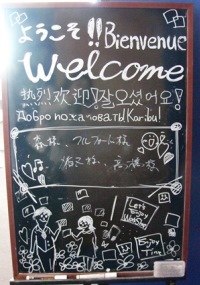 ようこそ!! Bienvenue
Welcome
热烈欢迎! 잘오셨어요!
Добро пожаловать! Karibu!
森様、フルフォード様
様、高橋様
Let's
Enjoy
Enjoy
Time